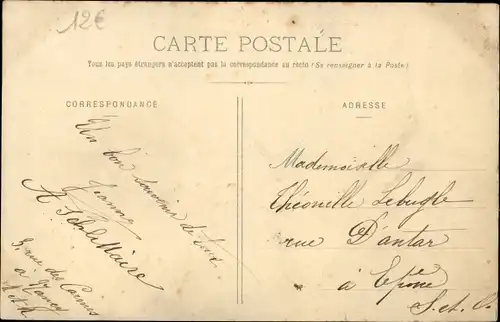 12€
CARTE POSTALE
Tous les pays étrangers n'acceptent pas la correspondance au recto (Se renseigner à la Poste)
CORRESPONDANCE
Un bon souvenir de
Jeanne
3, rue des Carmes
à Nancy
M et M
ADRESSE
Mademoiselle
Théonille Lebugle
rue D'antar
à Epône
S. et. O.